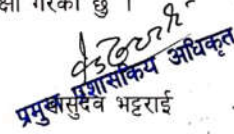 क्षा गरेको छु ।
प्रमुख प्रशासकिय अधिकृत
वासुदेव भट्टराई